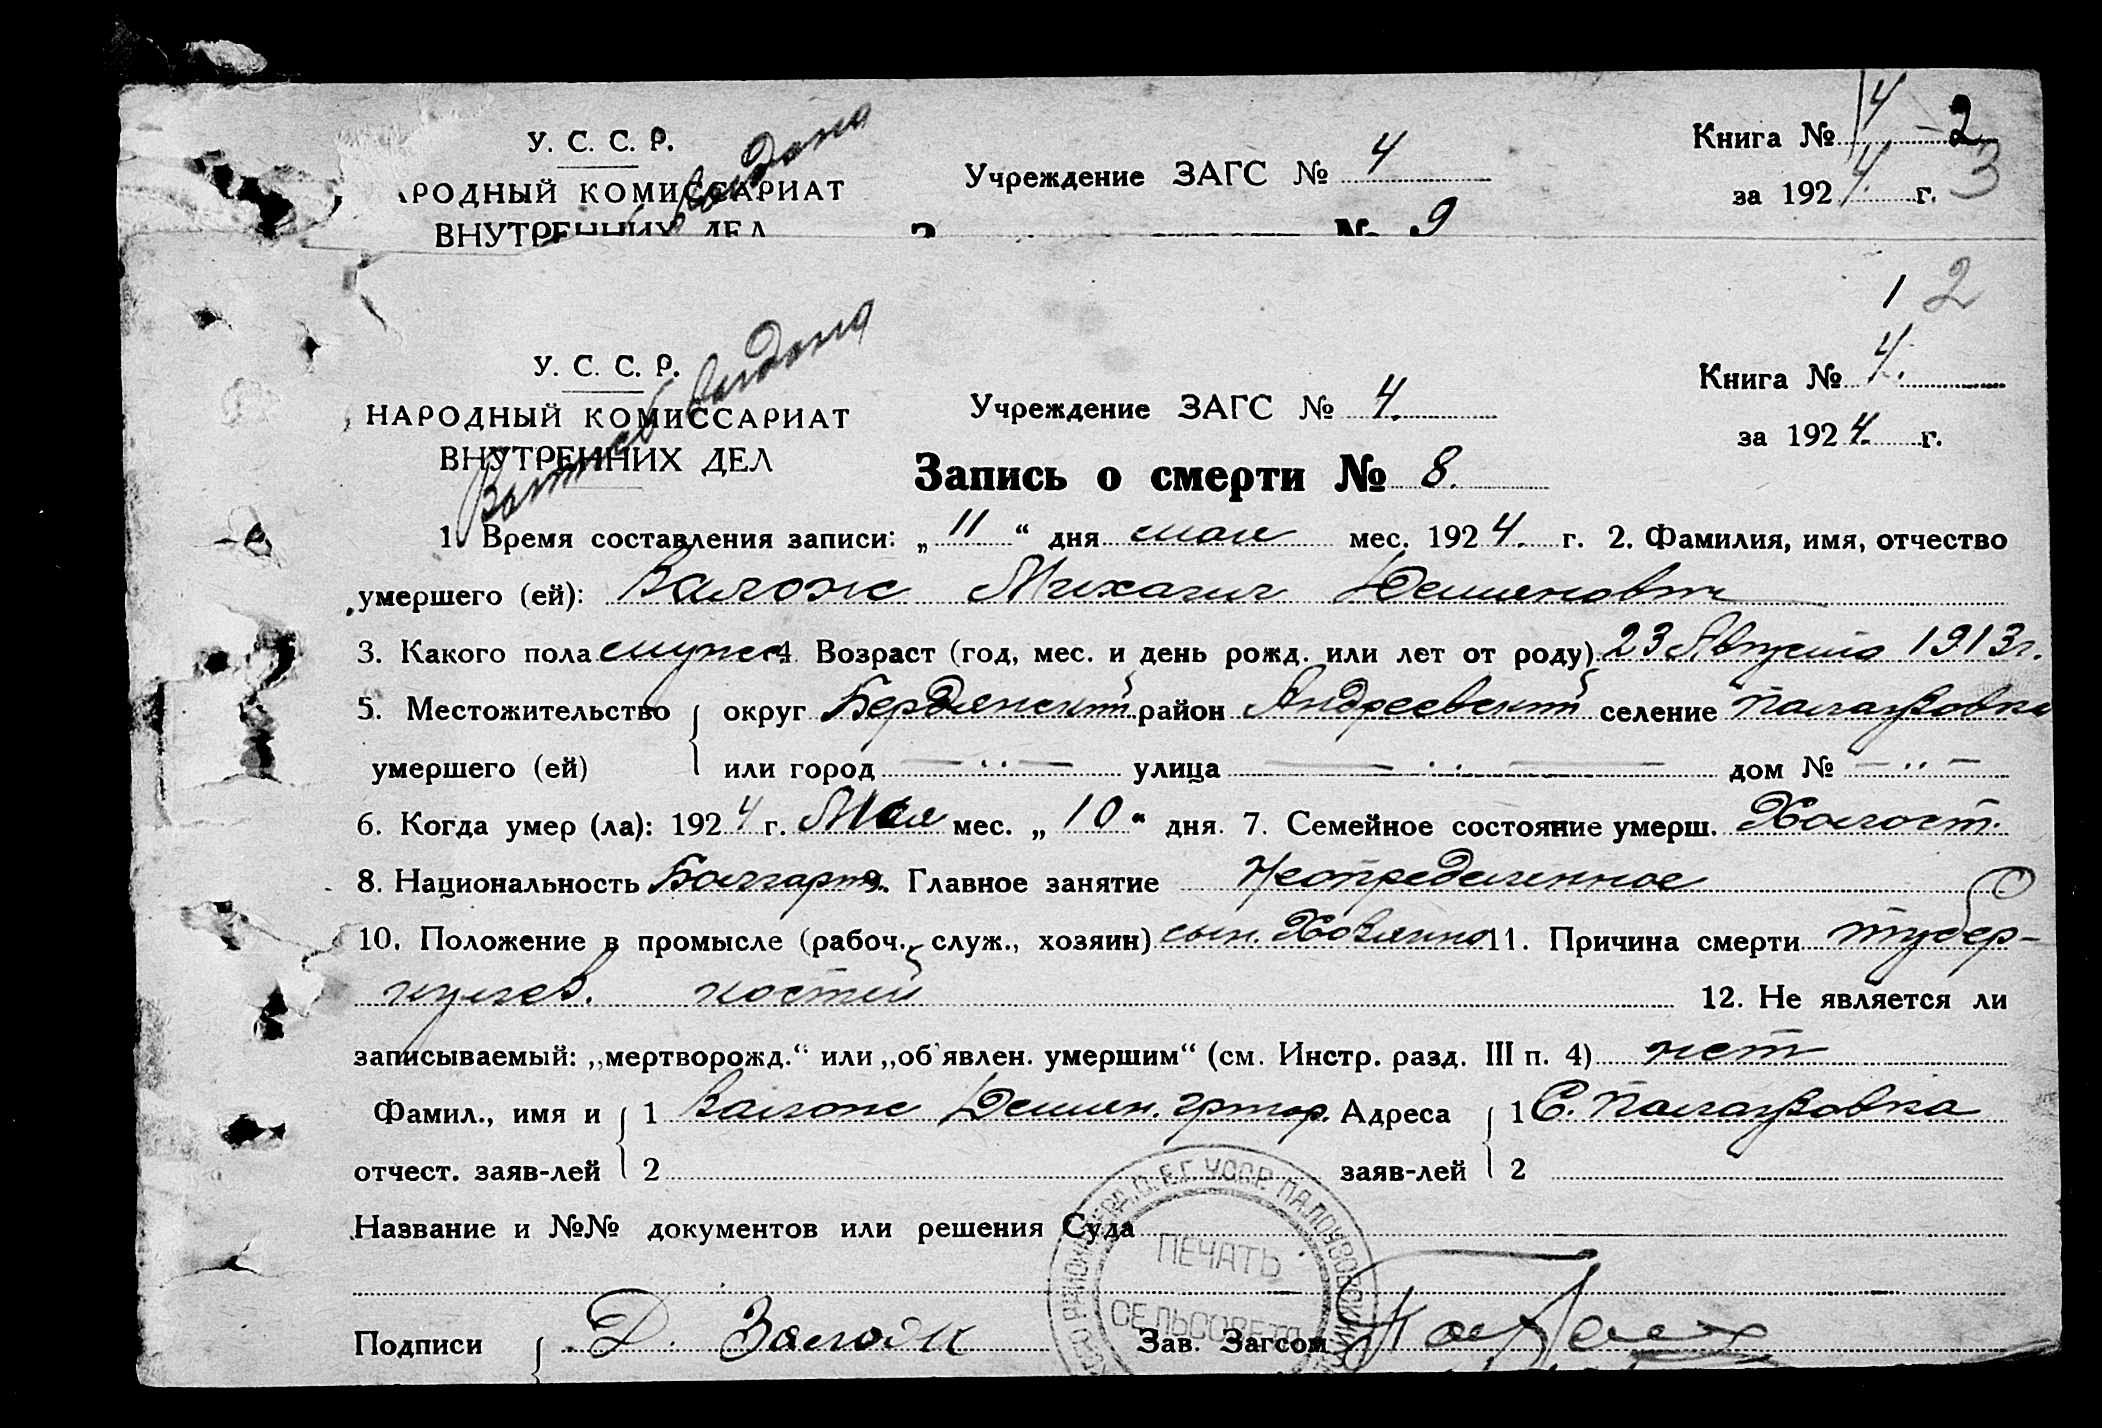 У. С. С. Р.
РОДНЫЙ КОМИССАРИАТ
ВНУТРЕННИХ ДЕЛ
Учреждение ЗАГС № 4
Книга № 4 - 2
за 1924 г. 3
№ 9
1 2
У. С. С. Р.
НАРОДНЫЙ КОМИССАРИАТ
ВНУТРЕННИХ ДЕЛ
выдана
Учреждение ЗАГС № 4.
Книга № 4.
за 1924. г.
Запись о смерти № 8.
1. Время составления записи: „ 11 “ дня мая мес. 1924. г. 2. Фамилия, имя, отчество
умершего (ей): Михаил
3. Какого пола мужс. 4. Возраст (год, мес. и день рожд. или лет от роду) 23 Августа 1913 г.
5. Местожительство { округ Бердянский район Андреевский селение Палаузовка
умершего (ей) или город — ·· — улица — ·· — дом № — ·· —
6. Когда умер (ла): 1924 г. Мая мес. „ 10 “ дня. 7. Семейное состояние умерш. Холост.
8. Национальность Болгарин 9. Главное занятие Неопределенное
10. Положение в промысле (рабоч., служ., хозяин) сын. Хозяина 11. Причина смерти тубер-
кулез. костей 12. Не является ли
записываемый: „мертворожд.“ или „об'явлен. умершим“ (см. Инстр. разд. III п. 4) нет
Фамил., имя и { 1 Адреса { 1 С. Палаузовка
отчест. заяв-лей 2 заяв-лей 2
Название и №№ документов или решения Суда
ПЕЧАТЬ
СЕЛЬСОВЕТА
Подписи { Д. Зав. Загсом